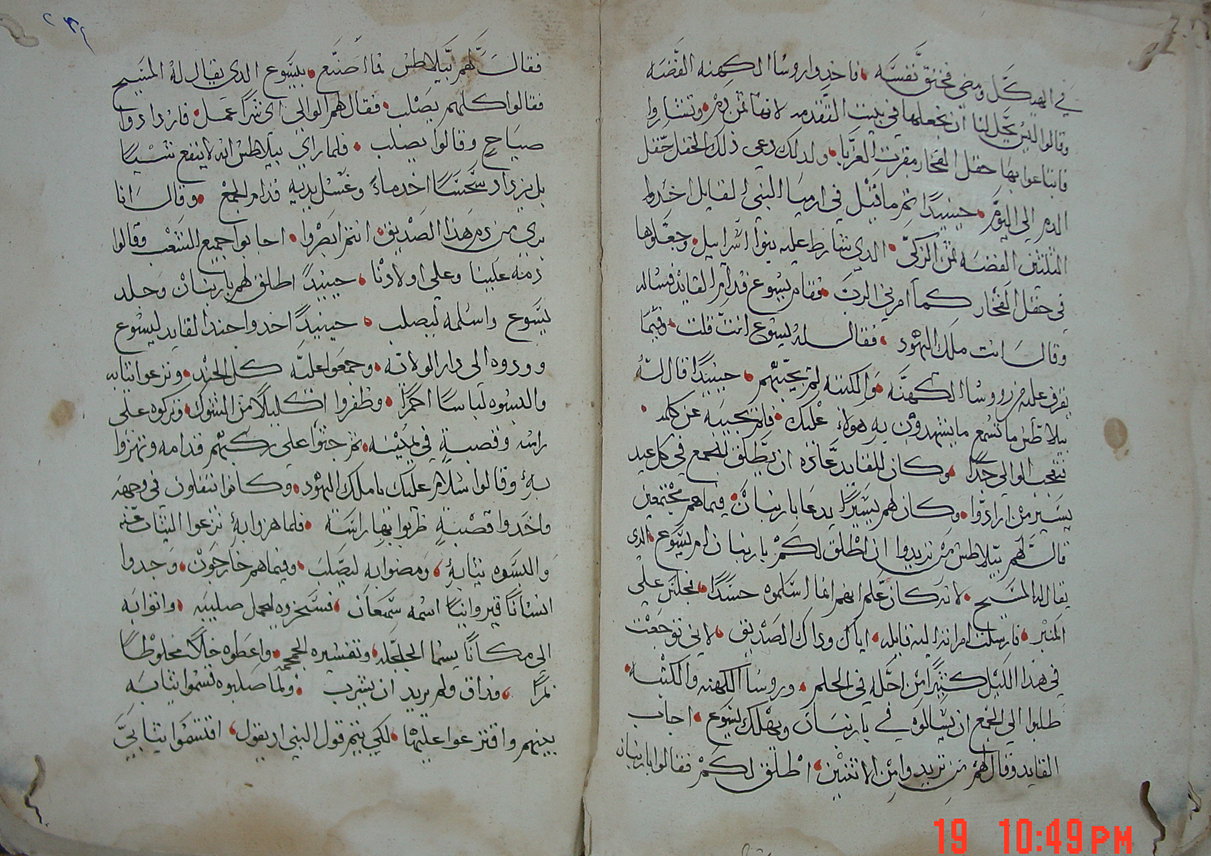 في الهيكل ومضى فخنق نفسه • فاخدوا روسا الكهنه الفضه
وقالوا ليس يحل لنا ان نجعلها في بيت التقدمه لانها ثمن دم • وتشاروا
فابتاعوا بها حقل الفخار مقبرة للغربا • ولدلك دعي ذلك الحقل حقل
الدم الى اليوم • حينيدا تم ما قيل في ارميا النبي القايل اخدوا
الثلثين الفضه ثمن الزكي • الدي شارط عليه بنوا اسراييل • وجعلوها
في حقل الفخار كما امرني الرب • فقام يسوع قدام القايد فساله
وقال انت ملك اليهود • فقال له يسوع انت قلت • وفيما
يقرف عليه من روسا الكهنه • والكتبه لم يجيبهم • حينيدا قال له
بيلاطس ما تسمع ما يشهدون به هولاء عليك • فلم يجيبه عن كلمه •
فتعجب الوالي جدا • وكان للقايد عاده ان يطلق للجمع في كل عيد
يسير من ارادوا • وكان لهم يسيرا يدعا باربنان • فيما هم مجتمعين
قال لهم بيلاطس من تريدوا ان اطلق لكم باربنان ام يسوع الدي
يقال له المسيح • لانه كان علم انهم انما اسلموه حسدا • فجلس على
المنبر • فارسلت امراته اليه قايله • اياك وداك الصديق • لاني توجعت
في هدا الليل كثيرا من اجله في الحلم • وروسا الكهنه والكتبه •
طلبوا الى الجمع ان يسالوه في باربنان • ويهلك يسوع • اجاب
القايد وقال لهم من تريدوا من الاثنين • اطلق لكم فقالوا باربنان
فقال لهم بيلاطس فما اصنع • بيسوع الدي يقال له المسيح
فقالوا كلهم يصلب • فقال لهم الوالي اي شرا عمل • فازدادوا
صياح وقالوا يصلب • فلما راي بيلاطس انه لا ينفع شيا
بل يزداد سجسا اخد ماء وغسل يديه قدام الجمع • وقال انا
بري من دم هدا الصديق • انتم ابصروا • اجابوا جميع الشعب وقالوا
دمه علينا وعلى اولادنا • حينيدا اطلق لهم باربنان وجلد
يسوع واسلمه ليصلب • حينيدا اخدوا جند القايد ليسوع
وودوه الى دار الولايه • وجمعوا عليه كل الجند • ونزعوا ثيابه
والبسوه لباسا احمرا • وظفروا اكليلا من الشوك • وتركوه على
راسه وقصبه في يمينه • ثم جثوا على ركبهم قدامه وتهزوا
به • وقالوا سلام عليك يا ملك اليهود • وكانوا يتفلون في وجهه
واخدوا قصبه ضربوا بها راسه • فلما هزوا به • نزعوا الثياب عنه
والبسوه ثيابه • ومضوا به ليصلب • وفيما هم خارجون • وجدوا
انسانا قيروانيا اسمه سمعان • فسخروه لحمل صليبه • واتوا به
الى مكانا يسما الجلجله • وتفسيره الجمجمه • واعطوه خلا مخلوطا
مرا • فداق ولم يريد ان يشرب • ولما صلبوه قسموا ثيابه
بينهم واقترعوا عليها • لكي يتم قول النبي اد يقول • اقتسموا ثيابي
19 10:49 PM